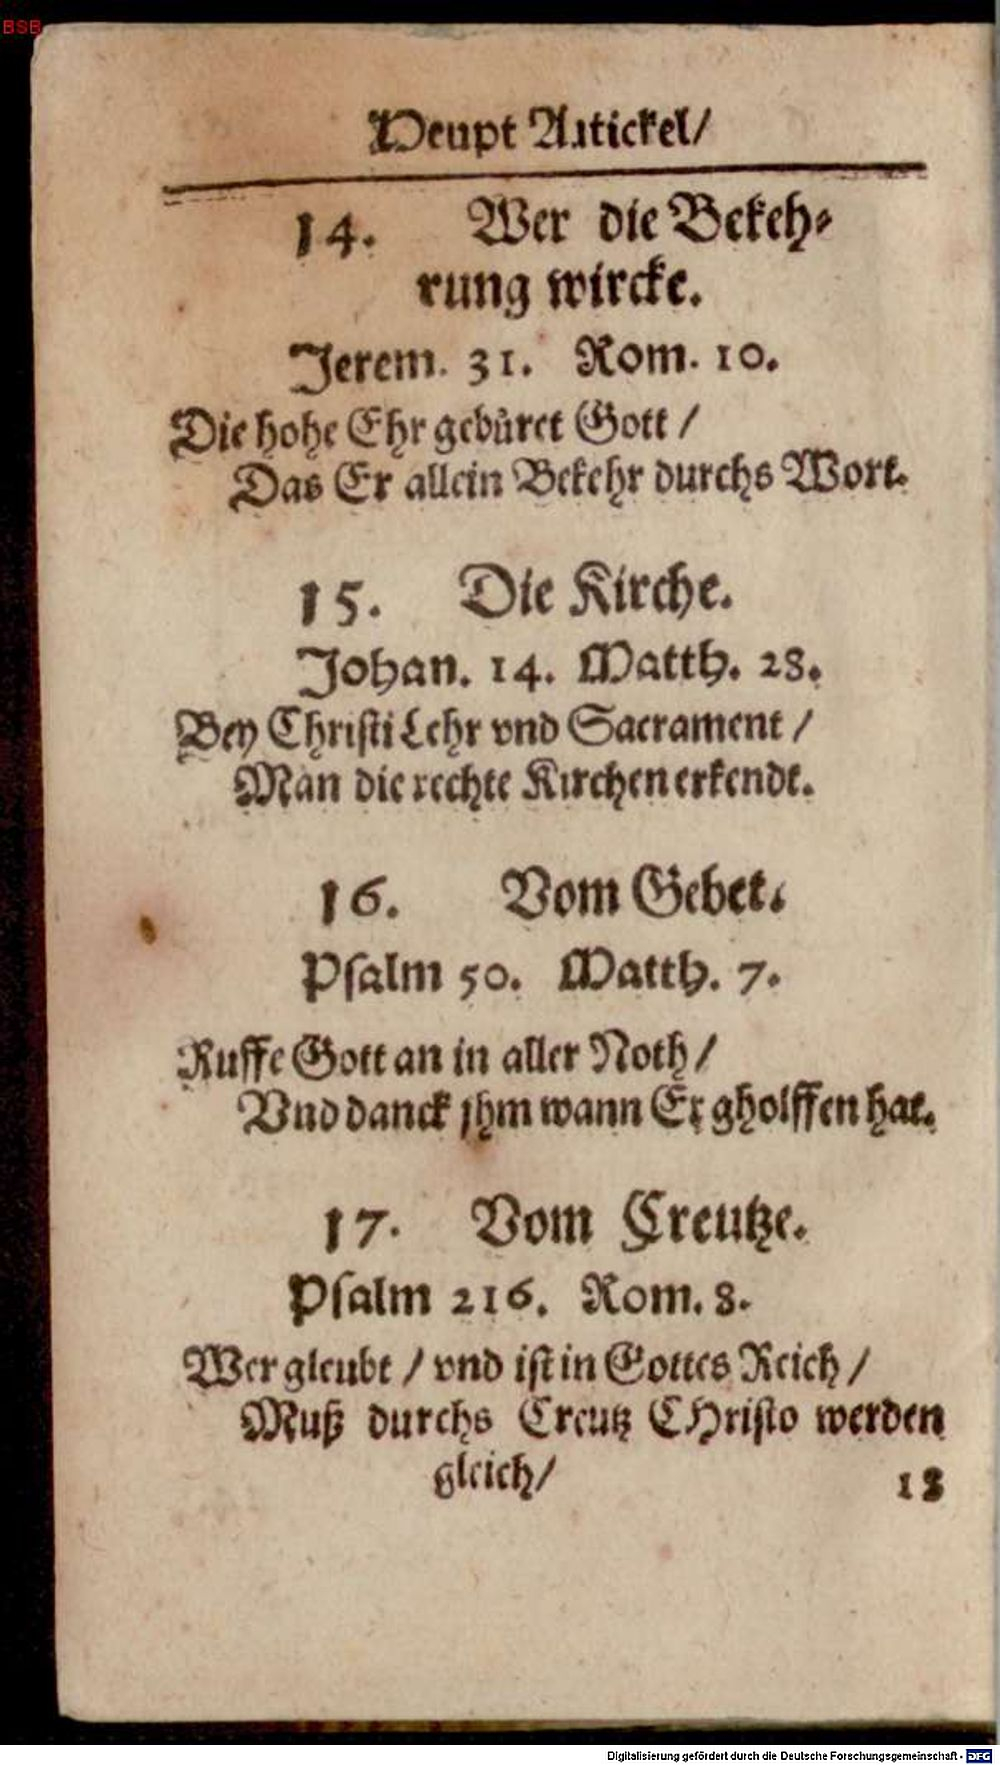 BSB
Heupt Artickel/
14. Wer die Bekeh⸗
rung wircke.
Jerem. 31. Rom. 10.
Die hohe Ehr gebuͤret Gott /
Das Er allein Bekehr durchs Wort.
15. Die Kirche.
Johan. 14. Matth. 28.
Bey Christi Lehr vnd Sacrament /
Man die rechte Kirchen erkendt.
16. Vom Gebet.
Psalm 50. Matth. 7.
Ruffe Gott an in aller Noth /
Vnd danck jhm wann Er gholffen hat.
17. Vom Creutze.
Psalm 216. Rom. 8.
Wer gleubt / vnd ist in Gottes Reich /
Muß durchs Creutz CHristo werden
gleich /
18
Digitalisierung gefördert durch die Deutsche Forschungsgemeinschaft - DFG